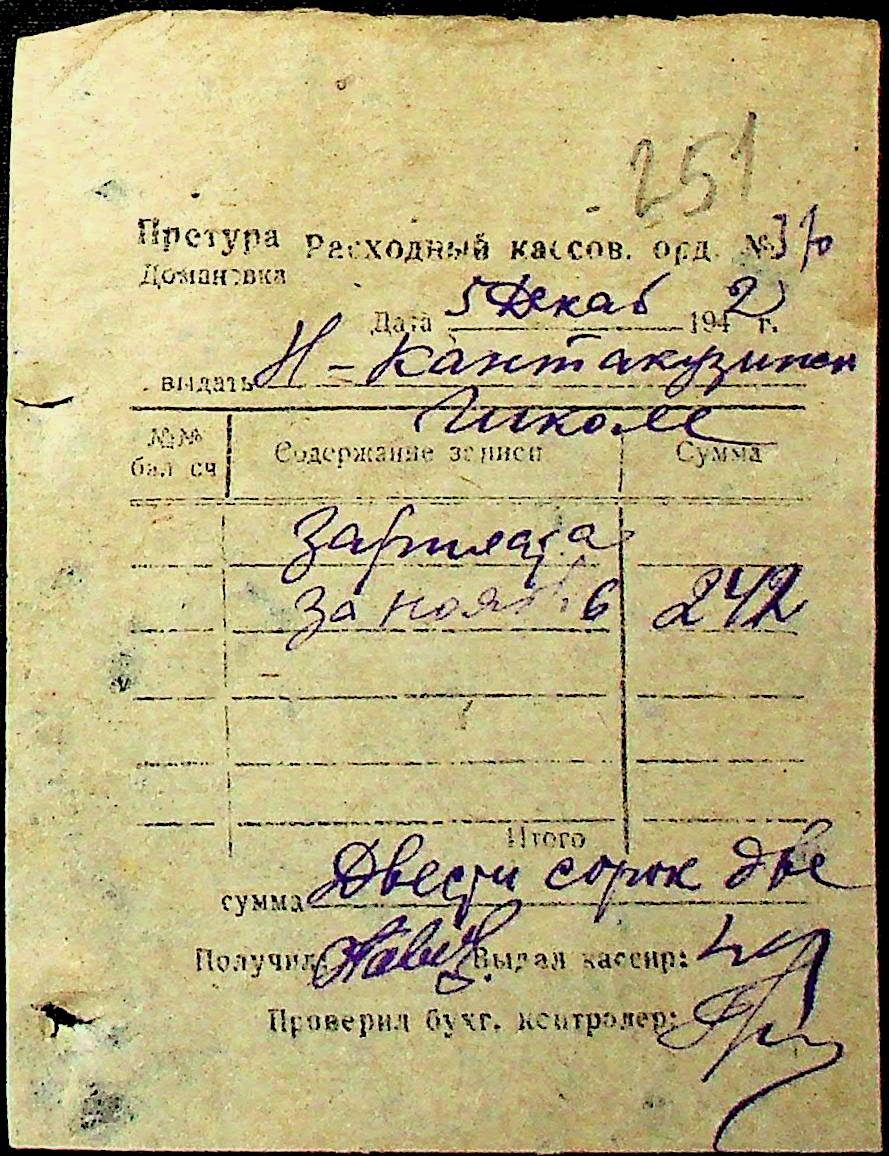 251
Претура Расходный кассов. орд. №
Домановка
Дата 5 Декаб 1942 г.
выдать Н-Кантакузинск
школе
№№ бал сч Содержание записи Сумма
Зарплата
за ноябрь 242
Итого
сумма Двести сорок две
Получил Выдал кассир:
Проверил бухг. контролер: